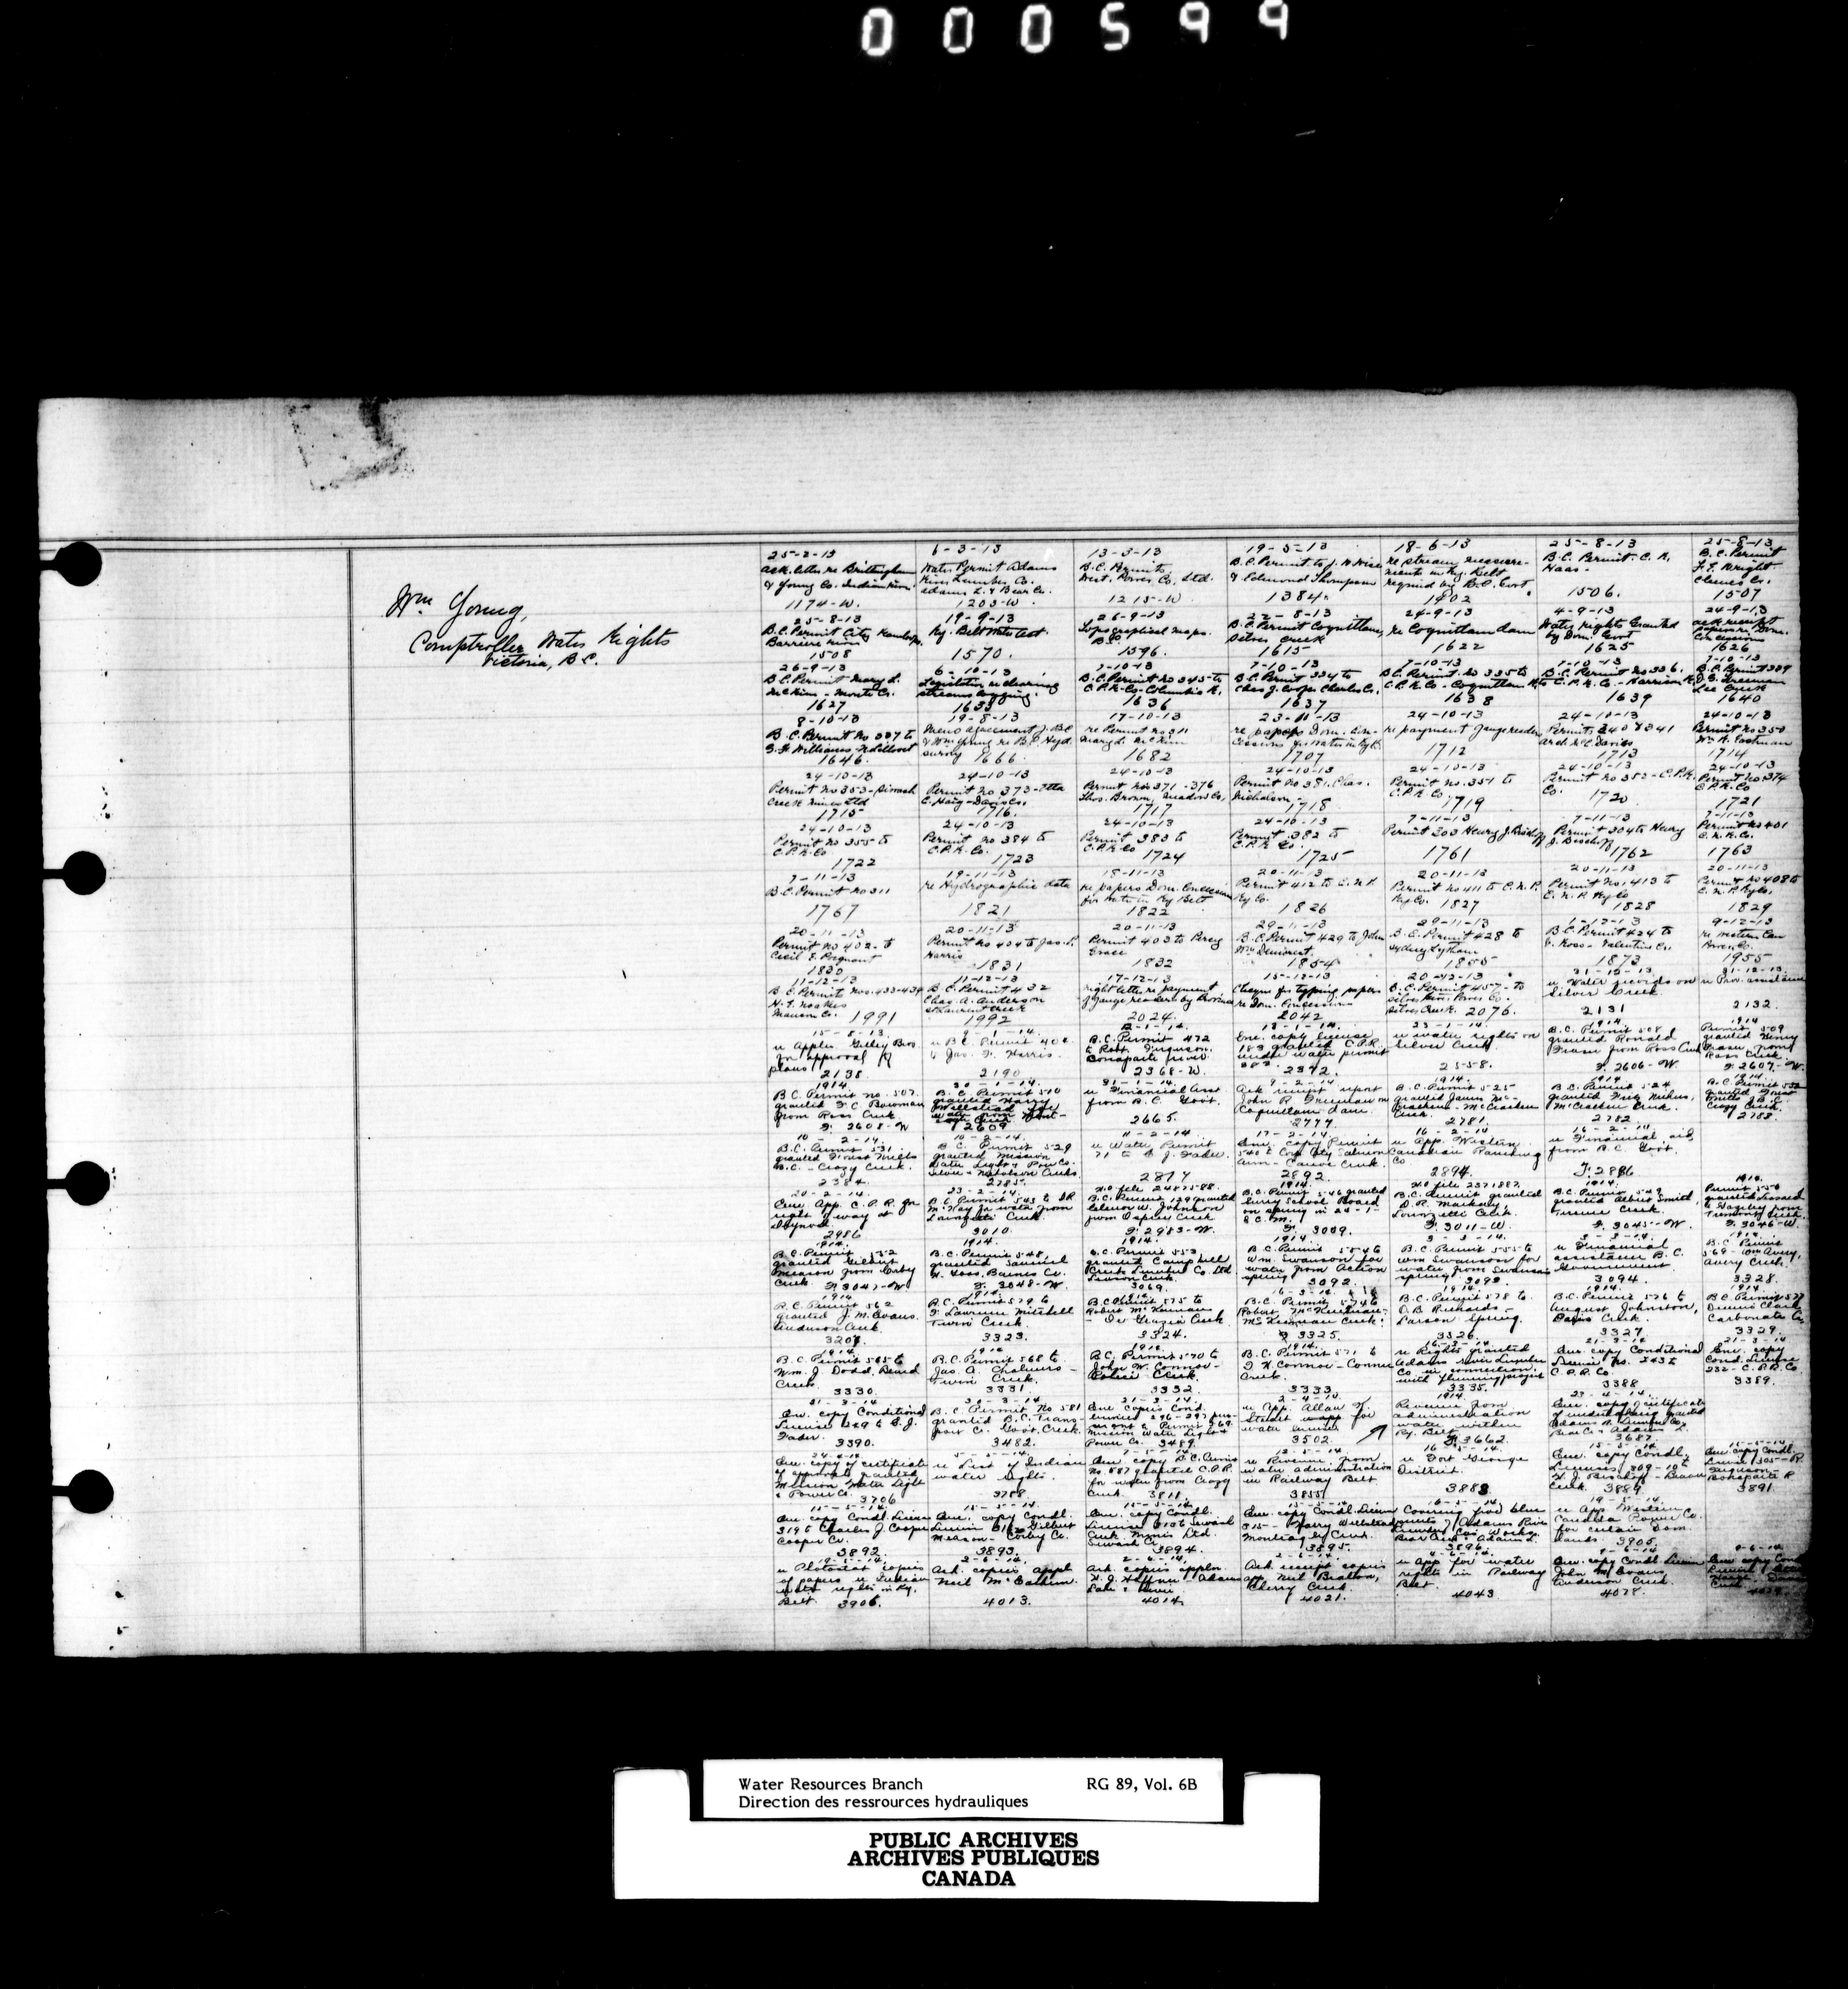 000599
Wm Young,
Comptroller Water Rights
Victoria, B.C.
25-2-13
Ack. letter re Brettingham
& Young Co. Indian River
1174-W.
6-3-13
Water Permit Adams
River Lumber Co.
Adams L. & Bear Cr.
1203-W.
13-3-13
B.C. Permit
West. Power Co. Ltd.
1215-W
19-5-13
B.C. Permit to J. W. Wise
& Edmond Thompson
1384.
18-6-13
re stream measure-
ments in Ry. Belt
required by B.C. Govt.
1402
25-8-13
B.C. Permit. C. A.
Haas.
1506.
25-8-13
B.C. Permit
F. F. Wright
Clemes Cr.
1507
25-8-13
B.C. Permit City Kamloops
Barriere River
1508
19-9-13
Ry. Belt Water Act.
1570.
26-9-13
Topographical maps.
B.C.
1596.
22-8-13
B.C. Permit Coquitlam,
Silver Creek
1615
24-9-13
re Coquitlam dam
1622
4-9-13
Water Rights Granted
by Dom. Govt
1625
24-9-13
ack receipt
papers re Dom.
Concessions
1626
26-9-13
B.C. Permit Mary L.
McKim - Monte Cr.
1627
6-10-13
Legislation re clearing
streams logging.
1635
7-10-13
B.C. Permit No 345 to
C.P.R. Co - Columbia R.
1636
7-10-13
B.C. Permit 334 to
Chas J. Cooper Charles Cr.
1637
7-10-13
B.C. Permit No 335 to
C.P.R. Co - Coquitlam R.
1638
7-10-13
B.C. Permit No 336.
to C.P.R. Co - Harrison R.
1639
7-10-13
B.C. Permit 339
Lee Creek
1640
8-10-13
B.C. Permit No 337 to
G. H. Williams
1646.
19-8-13
Memo agreement J.B.C.
& Wm Young re B.C. Hyd.
survey 1666.
17-10-13
re Permit no 311
Mary L. McKim
1682
23-10-13
re papers Dom. Con-
cessions for water in Ry B.
1707
24-10-13
re payment gauge readers
1712
24-10-13
Permits 340 & 341
Arch. McC. Davies
1713
24-10-13
Permit no 350
Wm. A. Eastman
1714
24-10-13
Permit No 353 -
Creek Mines Ltd
1715
24-10-13
Permit No 373 - Etta
C. Haig - Davis Cr.
1716.
24-10-13
Permit Nos 371 - 376
Thos. Brown, Meadow Cr,
1717
24-10-13
Permit No 381. Chas.
Nicholson -
1718
24-10-13
Permit no. 351 to
C.P.R. Co.
1719
24-10-13
Permit no 352 - C.P.R.
Co.
1720
24-10-13
Permit no. 374
C.P.R. Co
1721
24-10-13
Permit no 355 to
C.P.R. Co
1722
24-10-13
Permit no 384 to
C.P.R. Co.
1723
24-10-13
Permit 383 to
C.P.R. Co
1724
24-10-13
Permit 382 to
C.P.R. Co.
1725
7-11-13
Permit 303 Henry J. Bischoff
1761
7-11-13
Permit 304 to Henry
J. Bischoff
1762
7-11-13
Permit No 401
C.N.R. Co.
1763
7-11-13
B.C. Permit no 311
1767
19-11-13
re Hydrographic data
1821
18-11-13
re papers Dom. Concession
for water in Ry Belt
1822
20-11-13
Permit 412 to C.N.P.
Ry Co.
1826
20-11-13
Permit no 411 to C.N.P.
Ry Co. 1827
20-11-13
Permit No. 413 to
C.N.P. Ry Co
1828
20-11-13
Permit No 408 to
C.N.P. Ry Co.
1829
20-11-13
Permit No 402 - to
Cecil
1830
20-11-13
Permit No 404 to Jas. F.
Harris
1831
20-11-13
Permit 403 to Percy
Grace
1832
29-11-13
B.C. Permit 429 to John
Wm. Demorest.
1854
29-11-13
B.C. Permit 428 to
Sydney Lytham
1855
1-12-13
B.C. Permit 424 to
J. Ross - Valentine Cr.
1873
9-12-13
re Western Can
Power Co.
1955
11-12-13
B.C. Permits Nos. 433-434
H. T. Noakes
Manson Cr. 1991
11-12-13
B.C. Permit 432
Chas. A. Anderson
St Laurent Creek
1992
17-12-13
right letter re payment
of gauge readers by Province
2024
15-12-13
Cheque for typing papers
re Dom. Concession
2042
20-12-13
B.C. Permit 457 - to
Silver River Power Co.
Silver Creek. 2076.
31-12-13.
re Water records on
Silver Creek.
2131
31-12-13.
re Prov. assistance
2132.
15-8-13.
re Applcn. Gilley Bros.
for approval of
plans 2138.
9-1-14.
re B.C. Permit 404
to Jas. F. Harris.
2190
12-1-14.
B.C. Permit 472
to Robt. Ferguson.
Bonaparte River.
2368-W.
13-1-14.
Enc. copy license
183 granted C.P.R.
under water permit
2372.
23-1-14.
re water rights on
Silver Creek
2558.
1914
B.C. Permit 508
granted Ronald
Fraser from Ross Creek
F. 2606-W.
1914
Permit 509
granted Henry
Fraser from
Ross Creek
F. 2607-W.
1914.
B.C. Permit no. 507.
granted F. C. Bowman
from Ross Creek.
F. 2608-W
30-1-14.
B.C. Permit 510
granted Harry
Millstead for
2609
31-1-14.
re Financial Asst
from B.C. Govt.
2665.
9-2-14
Ack receipt report
John R. Freeman on
Coquitlam dam.
2777.
1914.
B.C. Permit 525
granted James Mc-
Cracken - McCracken
Creek. 2781.
1914
B.C. Permit 524
McCracken Creek.
2782.
1914
B.C. Permit 532
Crazy Creek.
2783.
10-2-14.
B.C. Permit 531
granted Forest Mills
B.C. - Crazy Creek.
2784.
10-2-14.
B.C. Permit 529
granted Mission
Water Light & Pow Co.
2785.
11-2-14
re Water Permit
71 to E. J. Fader.
2817
17-2-14.
Enc. copy Permit
540 to Corp. City Salmon
Arm - Canoe Creek.
2892.
16-2-14
re App. Western
Canadian Ranching
Co
2894.
16-2-14
re Financial aid
from B.C. Govt.
F. 2886
20-2-14.
Enc. App. C.P.R. for
right of way at
2986
23-2-14.
B.C. Permit 543 to D.R.
McKay for water from
Lorenzetti Creek.
3010.
H.O. file 2487588.
B.C. Permit 129 granted
Elenor W. Johnson
from Osprey Creek
F. 2983-W.
1914.
B.C. Permit 546 granted
Surrey School Board
on spring in 24-1-
E.C.M.
F. 3009.
H.O. file 2371887.
B.C. Permit granted
D.R. Mackay
Lorenzetti Creek.
F. 3011-W.
1914.
B.C. Permit 549
granted Albert Smith
Creek.
F. 3045-W
1914.
Permit 550
F. 3046-W.
1914.
B.C. Permit 552
granted Gilbert
Measor from Corby
Creek F. 3047-W
1914.
B.C. Permit 548
granted Samuel
H. Hoss. Baines Cr.
F. 3048-W.
1914.
B.C. Permit 553
granted Campbell
Creek Lumber Co. Ltd
3069.
1914
B.C. Permit 554 to
Wm. Swanson for
water from Action
spring 3092.
3-3-14.
B.C. Permit 555 to
Wm Swanson for
water from Swanson
spring 3093.
3-3-14.
re Financial
assistance B.C.
Government
3094.
1914.
B.C. Permit
569 - Wm Avery,
Avery Creek.
3328.
1914
B.C. Permit 562
granted J. M. Evans.
Anderson Creek.
3201.
1914.
B.C. Permit 579 to
F. Lawrence Mitchell
Twin Creek.
3323.
1914.
B.C. Permit 575 to
Robert McKinnan
3324.
16-3-14.
B.C. Permit 574 to
Robert McKinnan -
McKinnan Creek.
F. 3325.
1914.
B.C. Permit 578 to
O.B. Richards -
Larson Spring.
3326.
1914.
B.C. Permit 576 to
August Johnston,
Davis Creek.
3327
1914
B.C. Permit 577
Dennis Clark
Carbonate Cr.
3329.
1914
B.C. Permit 565 to
Wm. J. Dodd, Beard
Creek.
3330.
1914
B.C. Permit 568 to
Jas. A. Chalmers -
Twin Creek.
3331
1914.
B.C. Permit 570 to
John W. Connor -
Creek.
3332.
1914.
B.C. Permit 571 to
T. H. Connor - Connor
Creek.
3333
16-3-14
re Rights granted
Adams River Lumber
Co in connection
with fluming project
3335.
21-3-14
Enc. copy Conditional
License No. 243 to
C.P.R. Co.
3388
21-3-14
Enc. copy
Cond. License
232 - C.P.R. Co
3389.
21-3-14
Enc. copy Conditional
License 229 to E. J.
Fader.
3390.
30-3-14.
B.C. Permit No 581
granted B.C. Trans-
port Co. Govt. Creek.
3482.
31-3-14
Enc copies Cond.
licenses 296-297
Mission Water Light &
Power Co. 3489.
2-4-14.
re App. Allan F.
Stewart for
water license
3502.
1914.
Revenue from
administration
water within
Ry. Belt. F. 3662.
23-4-14.
Enc. copy of certificate
of undertaking granted
Adams R. Lumber Co.
Bear Cr. & Adams L.
3687.
24-4-14
Enc. copy of certificate
of approval granted
Mission Water Light
& Power Co.
3706
5-5-14.
re List of Indian
water rights.
3758.
7-5-14.
Enc. copy B.C. Permit
No. 587 granted C.P.R.
for water from Crazy
Creek. 3811.
12-5-14.
re Revenue from
water administration
in Railway Belt
3855
16-5-14.
re Fort George
District.
3883.
15-5-14.
Enc. copy Condl.
Licenses 309-10 to
H. J. Bischoff - Beaver
Creek. 3889
15-5-14.
Enc. copy Condl.
License 305 - R.
Ferguson -
Bonaparte R
3891
15-5-14.
Enc. copy Condl. License
319 to Charles J. Cooper
Cooper Cr.
3892.
15-5-14.
Enc. copy Condl.
License 316 Gilbert
Measor - Corby Cr.
3893.
15-5-14.
Enc. copy Condl.
License 310 to
Creek Mines Ltd.
3894.
15-5-14.
Enc. copy Condl. License
315 - Harry Willstead
Creek.
3895.
16-5-14.
Covering five blue
prints of Adams River
Lumber Co's Works.
Bear Creek & Adams L.
3896.
19-5-14.
re App. Western
Canada Power Co.
for certain Dom
lands 3905.
19-5-14.
re Photostat copies
of papers re Indian
water rights in Ry.
Belt. 3906.
2-6-14.
Ack. copies appl.
Neil McEachern.
4013.
2-6-14.
Ack. copies applcn.
H. J. Hoffman Adams
Lake & River.
4014.
2-6-14.
Ack receipt copies
app. Neil Bratton,
Cherry Creek.
4021.
4-6-14.
re App for water
rights in Railway
Belt.
4043.
8-6-14.
Enc. copy Condl. License
John M. Evans
Anderson Creek.
4078.
8-6-14
Enc copy Cond
License
Creek
Water Resources Branch
RG 89, Vol. 6B
Direction des ressrources hydrauliques
PUBLIC ARCHIVES
ARCHIVES PUBLIQUES
CANADA